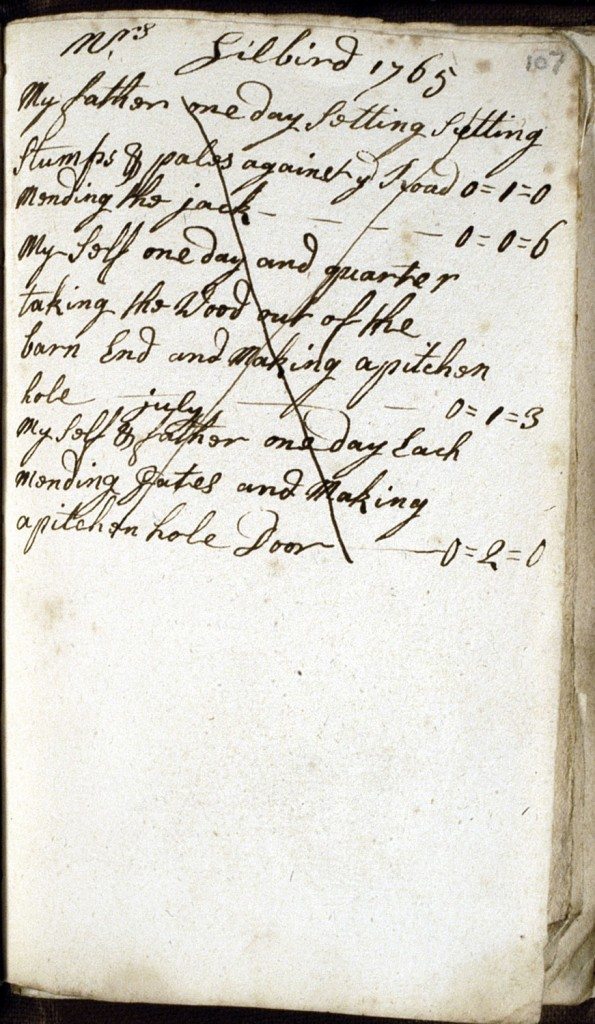 107
Mrs Silbird 1765
My father one day Setting Setting
Stumps & pales against ye Road 0=1=0
Mending the jack - - - - 0=0=6
My Self one day and quarter
taking the Wood out of the
barn End and Making a pitchen
hole - july - - 0=1=3
My Self & father one day Each
Mending Gates and Making
a pitchen hole Door - 0=2=0